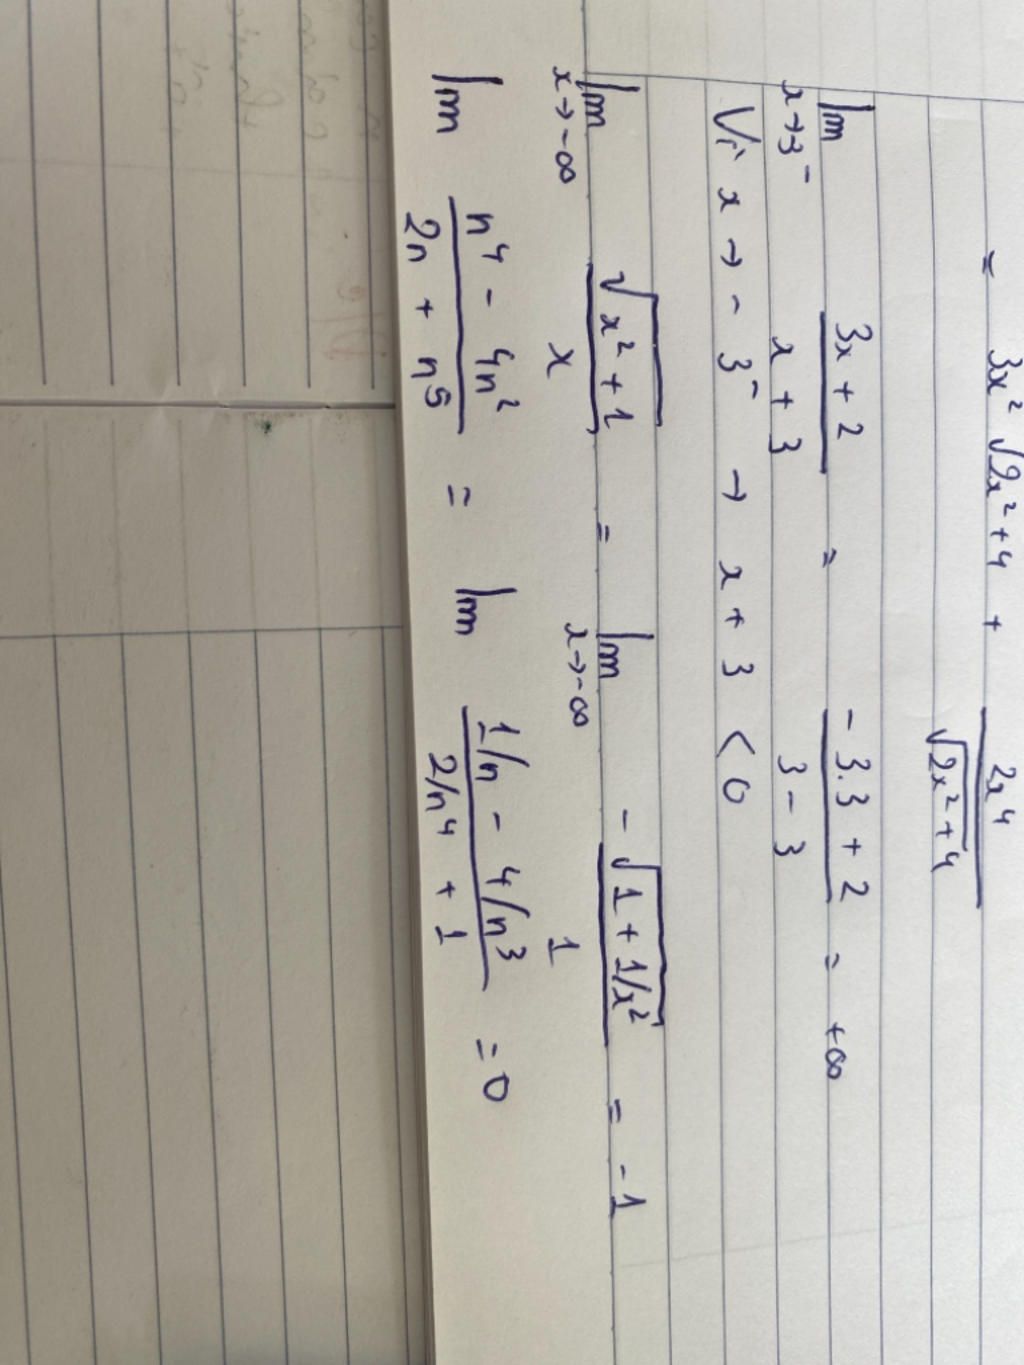 = 3x² √2x²+4 + 2x⁴ / √2x²+4
lim x→3⁻ 3x + 2 / x + 3 = - 3.3 + 2 / 3 - 3 = +∞
Vì x → - 3⁻ → x + 3 < 0
lim x→-∞ √x² + 1 / x = lim x→-∞ -√1 + 1/x² / 1 = -1
lim n⁴ - 4n² / 2n + n⁵ = lim 1/n - 4/n³ / 2/n⁴ + 1 = 0